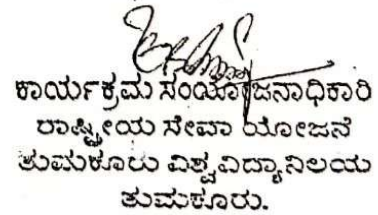 ಕಾರ್ಯಕ್ರಮ ಸಂಯೋಜನಾಧಿಕಾರಿ
ರಾಷ್ಟ್ರೀಯ ಸೇವಾ ಯೋಜನೆ
ತುಮಕೂರು ವಿಶ್ವವಿದ್ಯಾನಿಲಯ
ತುಮಕೂರು.